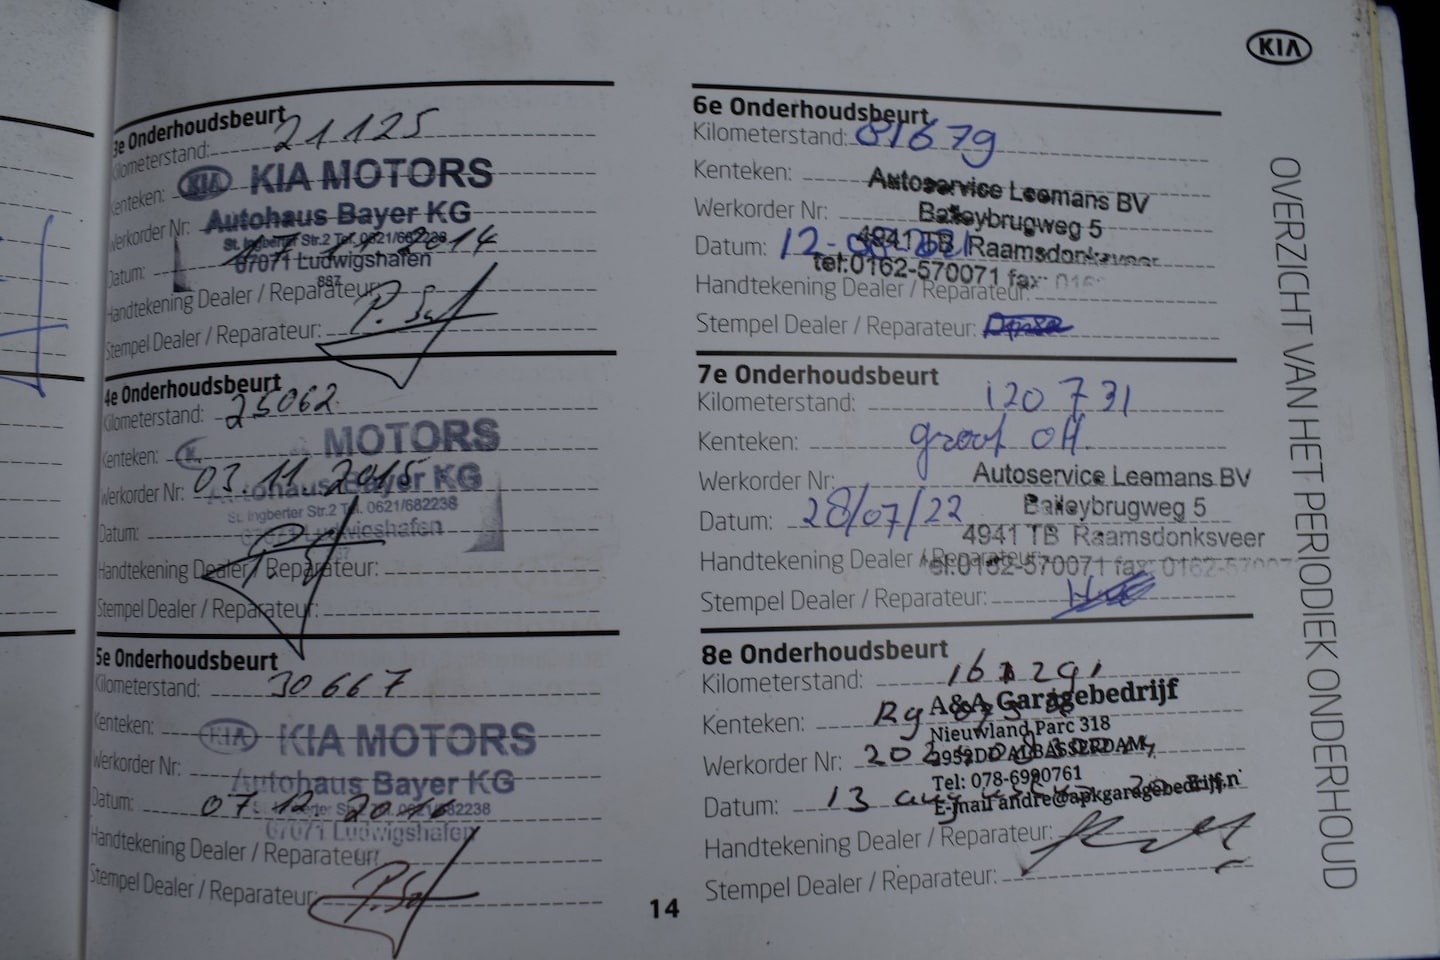 3e Onderhoudsbeurt
Kilometerstand: 21125
Kenteken: KIA KIA MOTORS
Werkorder Nr: Autohaus Bayer KG
St. Ingberter Str.2 Tel. 0621/682238
Datum: 2014
67071 Ludwigshafen
887
Handtekening Dealer / Reparateur:
Stempel Dealer / Reparateur:
4e Onderhoudsbeurt
Kilometerstand: 25062
Kenteken: MOTORS
Werkorder Nr: 03.11.2015
Autohaus Bayer KG
St. Ingberter Str.2 Tel. 0621/682238
Datum: 67071 Ludwigshafen
Handtekening Dealer / Reparateur:
Stempel Dealer / Reparateur:
5e Onderhoudsbeurt
Kilometerstand: 30667
Kenteken: KIA KIA MOTORS
Werkorder Nr: Autohaus Bayer KG
Datum: 07.12.2016
67071 Ludwigshafen
Handtekening Dealer / Reparateur:
Stempel Dealer / Reparateur:
KIA
6e Onderhoudsbeurt
Kilometerstand: 81679
Kenteken: Autoservice Leemans BV
Werkorder Nr: Baileybrugweg 5
Datum: 4941 TB Raamsdonksveer
tel:0162-570071 fax:
Handtekening Dealer / Reparateur:
Stempel Dealer / Reparateur:
7e Onderhoudsbeurt
Kilometerstand: 120731
Kenteken: groot OH
Werkorder Nr: Autoservice Leemans BV
Baileybrugweg 5
Datum: 28/07/22
4941 TB Raamsdonksveer
Handtekening Dealer / Reparateur:
tel:0162-570071 fax: 0162-57007
Stempel Dealer / Reparateur:
8e Onderhoudsbeurt
Kilometerstand:
A&A Garagebedrijf
Kenteken:
Nieuwland Parc 318
Werkorder Nr:
2952DD ALBLASSERDAM
Tel: 078-6990761
Datum: 13
E-mail andre@apkgaragebedrijf.n
Handtekening Dealer / Reparateur:
Stempel Dealer / Reparateur:
OVERZICHT VAN HET PERIODIEK ONDERHOUD
14